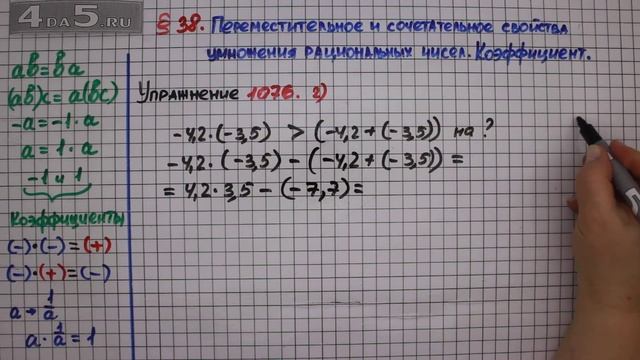 4DA5.RU
§ 38. Переместительное и сочетательное свойства
умножения рациональных чисел. Коэффициент.
ab = ba
(ab)c = a(bc)
-a = -1 · a
a = 1 · a
-1 и 1
Коэффициенты
(-)·(-)=(+)
(-)·(+)=(-)
a → 1/a
a · 1/a = 1
Упражнение 1076. г)
-4,2·(-3,5) > (-4,2+(-3,5)) на ?
-4,2·(-3,5)-(-4,2+(-3,5))=
=4,2·3,5-(-7,7)=